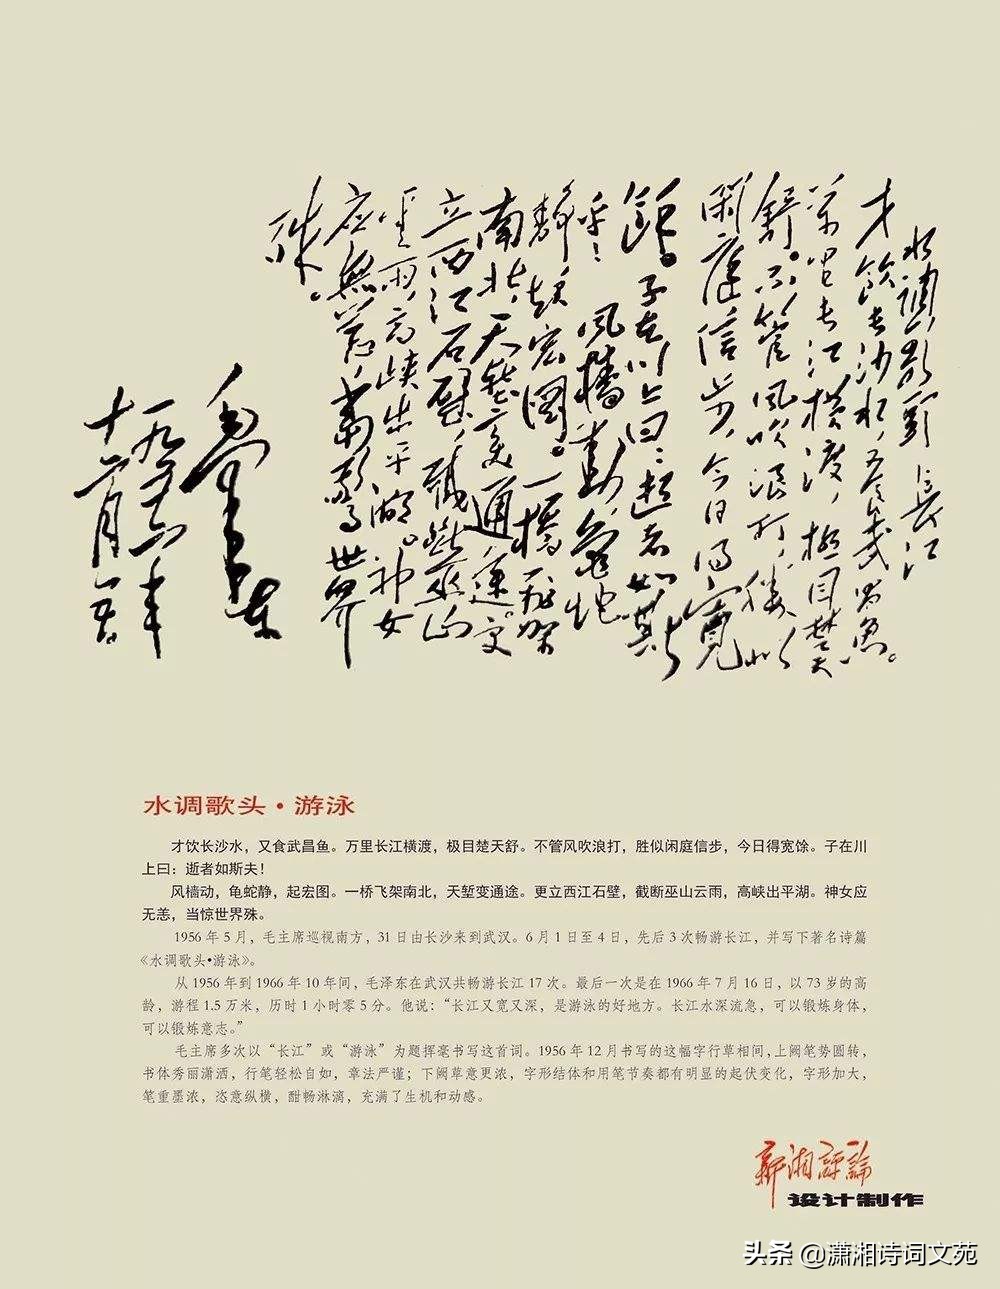 水调歌头 長江
才饮长沙水，又食武昌鱼。
万里长江横渡，极目楚天
舒。不管风吹浪打，胜似
闲庭信步，今日得寬
馀。子在川上曰：逝者如斯
乎！ 风樯动，龟蛇
静，起宏图。一桥飞架
南北，天堑变通途。更
立西江石壁，截断巫山
云雨，高峡出平湖。神女
应無恙，当惊世界
殊。
毛泽东
一九五六年
十二月五日
水调歌头·游泳
才饮长沙水，又食武昌鱼。万里长江横渡，极目楚天舒。不管风吹浪打，胜似闲庭信步，今日得宽馀。子在川
上曰：逝者如斯夫！
风樯动，龟蛇静，起宏图。一桥飞架南北，天堑变通途。更立西江石壁，截断巫山云雨，高峡出平湖。神女应
无恙，当惊世界殊。
1956年5月，毛主席巡视南方，31日由长沙来到武汉。6月1日至4日，先后3次畅游长江，并写下著名诗篇
《水调歌头•游泳》。
从1956年到1966年10年间，毛泽东在武汉共畅游长江17次。最后一次是在1966年7月16日，以73岁的高
龄，游程1.5万米，历时1小时零5分。他说：“长江又宽又深，是游泳的好地方。长江水深流急，可以锻炼身体，
可以锻炼意志。”
毛主席多次以“长江”或“游泳”为题挥毫书写这首词。1956年12月书写的这幅字行草相间，上阕笔势圆转，
书体秀丽潇洒，行笔轻松自如，章法严谨；下阕草意更浓，字形结体和用笔节奏都有明显的起伏变化，字形加大，
笔重墨浓，恣意纵横，酣畅淋漓，充满了生机和动感。
新湘評論
设计制作
头条 @潇湘诗词文苑